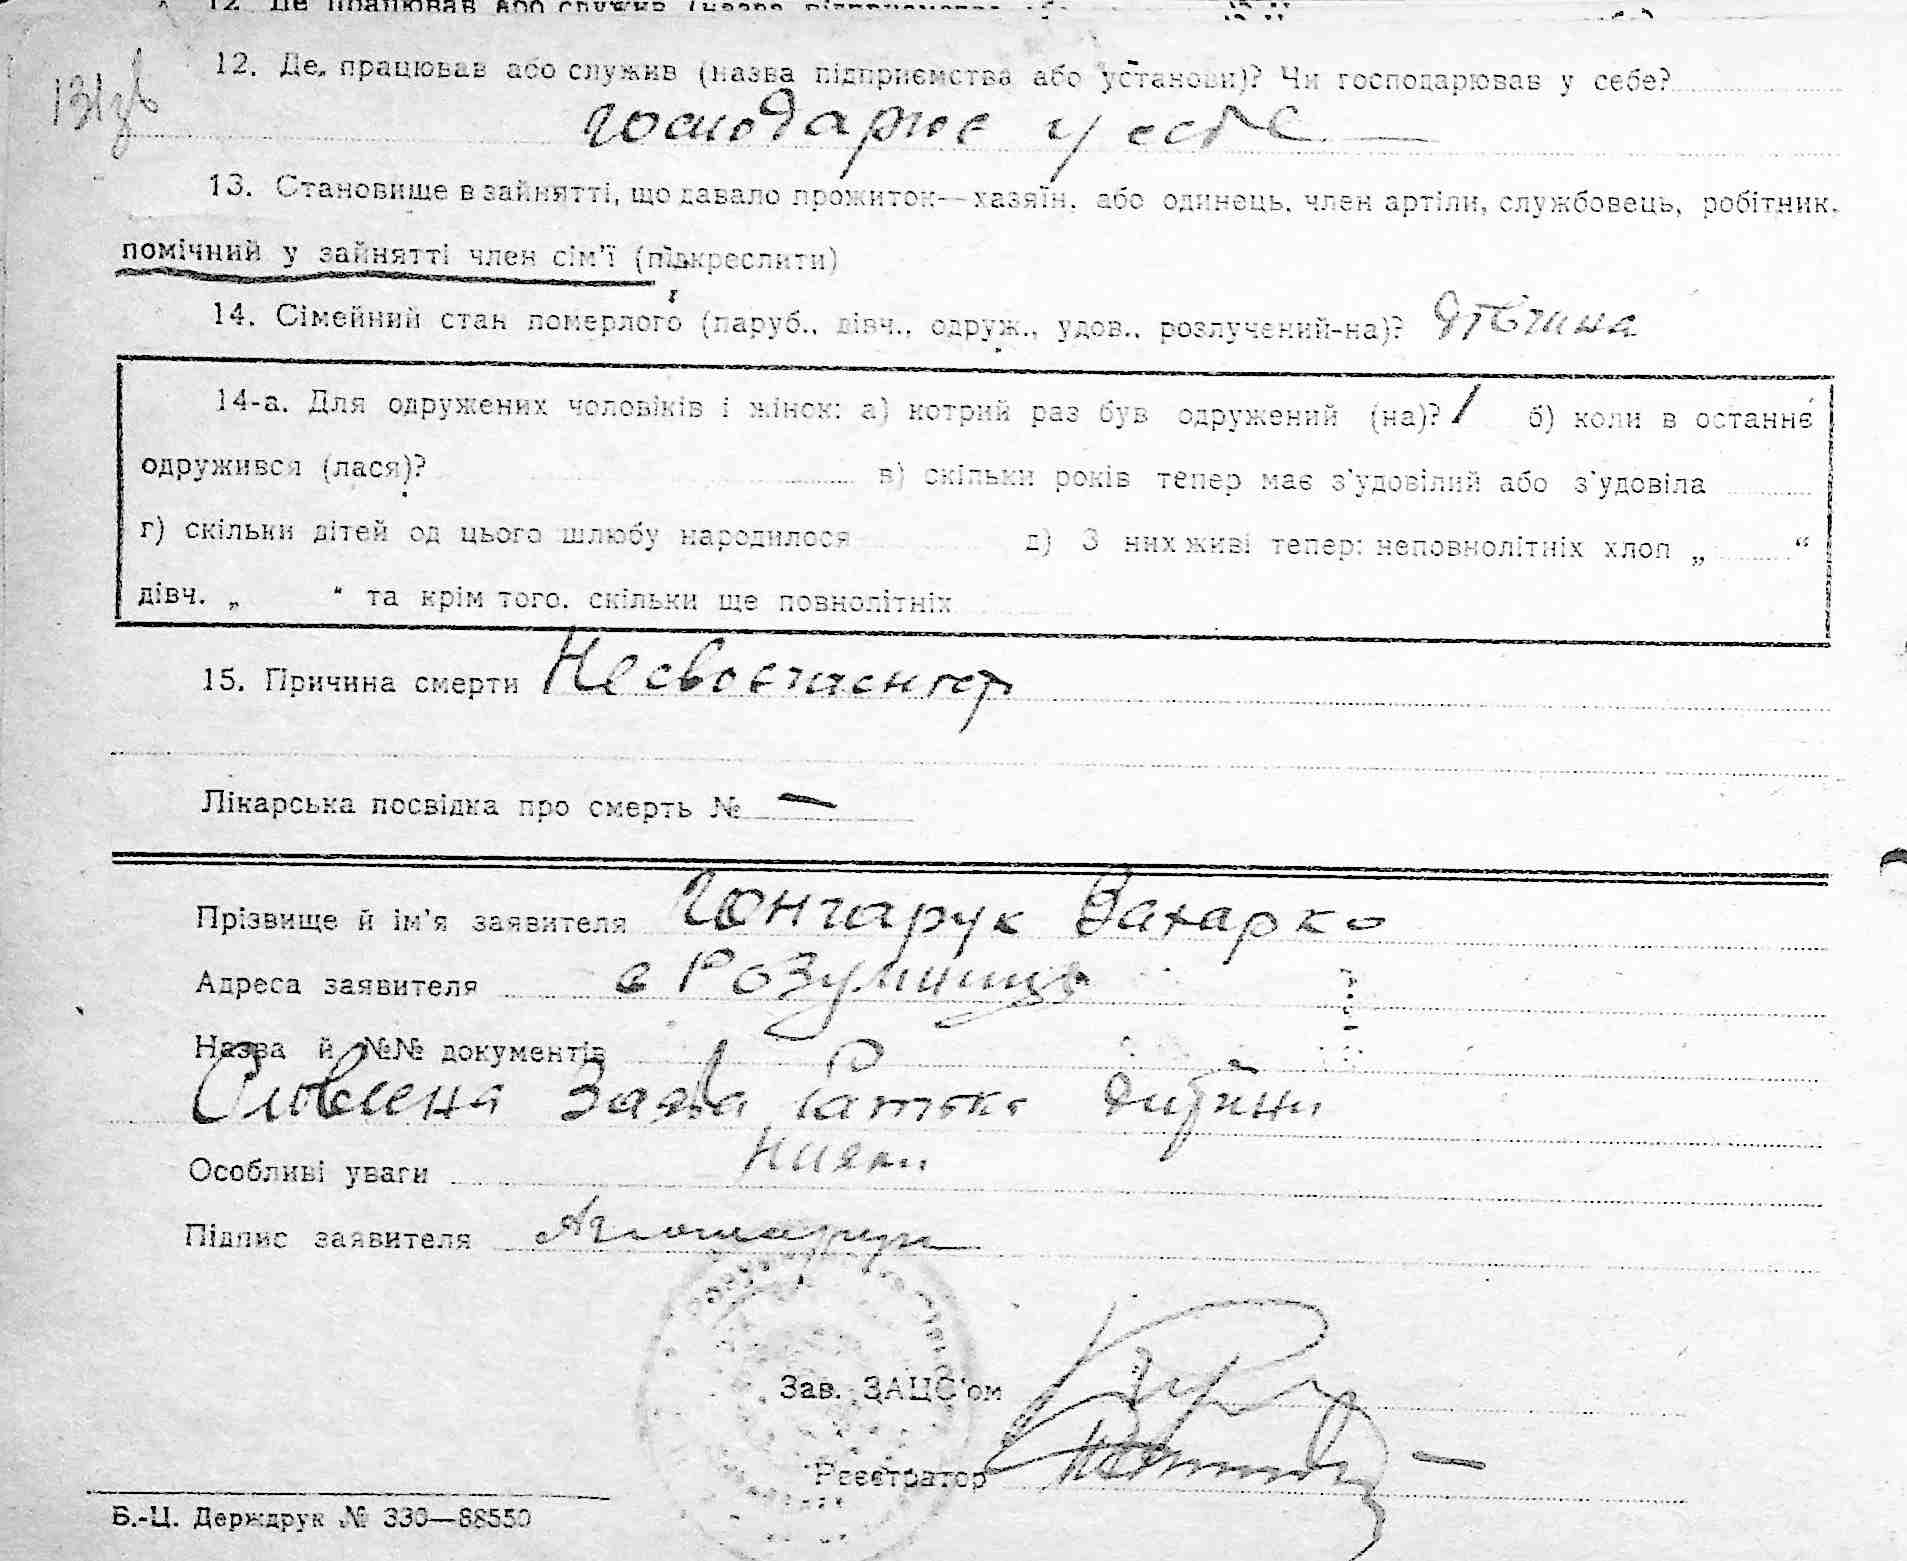 12. Де працював або служив (назва підприємства або установи)? Чи господарював у себе?
131зв
господарює у себе
13. Становище в зайнятті, що давало прожиток—хазяїн, або одинець, член артіли, службовець, робітник,
помічний у зайнятті член сім'ї (підкреслити)
14. Сімейний стан померлого (паруб., дівч., одруж., удов., розлучений-на)? дівчина
14-а. Для одружених чоловіків і жінок: а) котрий раз був одружений (на)? / б) коли в останнє
одружився (лася)? в) скільки років тепер має з'удовілий або з'удовіла
г) скільки дітей од цього шлюбу народилося д) З них живі тепер: неповнолітніх хлоп „ “
дівч. „ “ та крім того, скільки ще повнолітніх
15. Причина смерти Несвоєчасніст
Лікарська посвідка про смерть № —
Прізвище й ім'я заявителя Гончарук Захарко
Адреса заявителя с Розумниця
Назва й №№ документів
Словесна Заява батька дитини
Особливі уваги нияки
Підпис заявителя
Зав. ЗАЦС'ом
Реєстратор
Б.-Ц. Держдрук № 330—68550